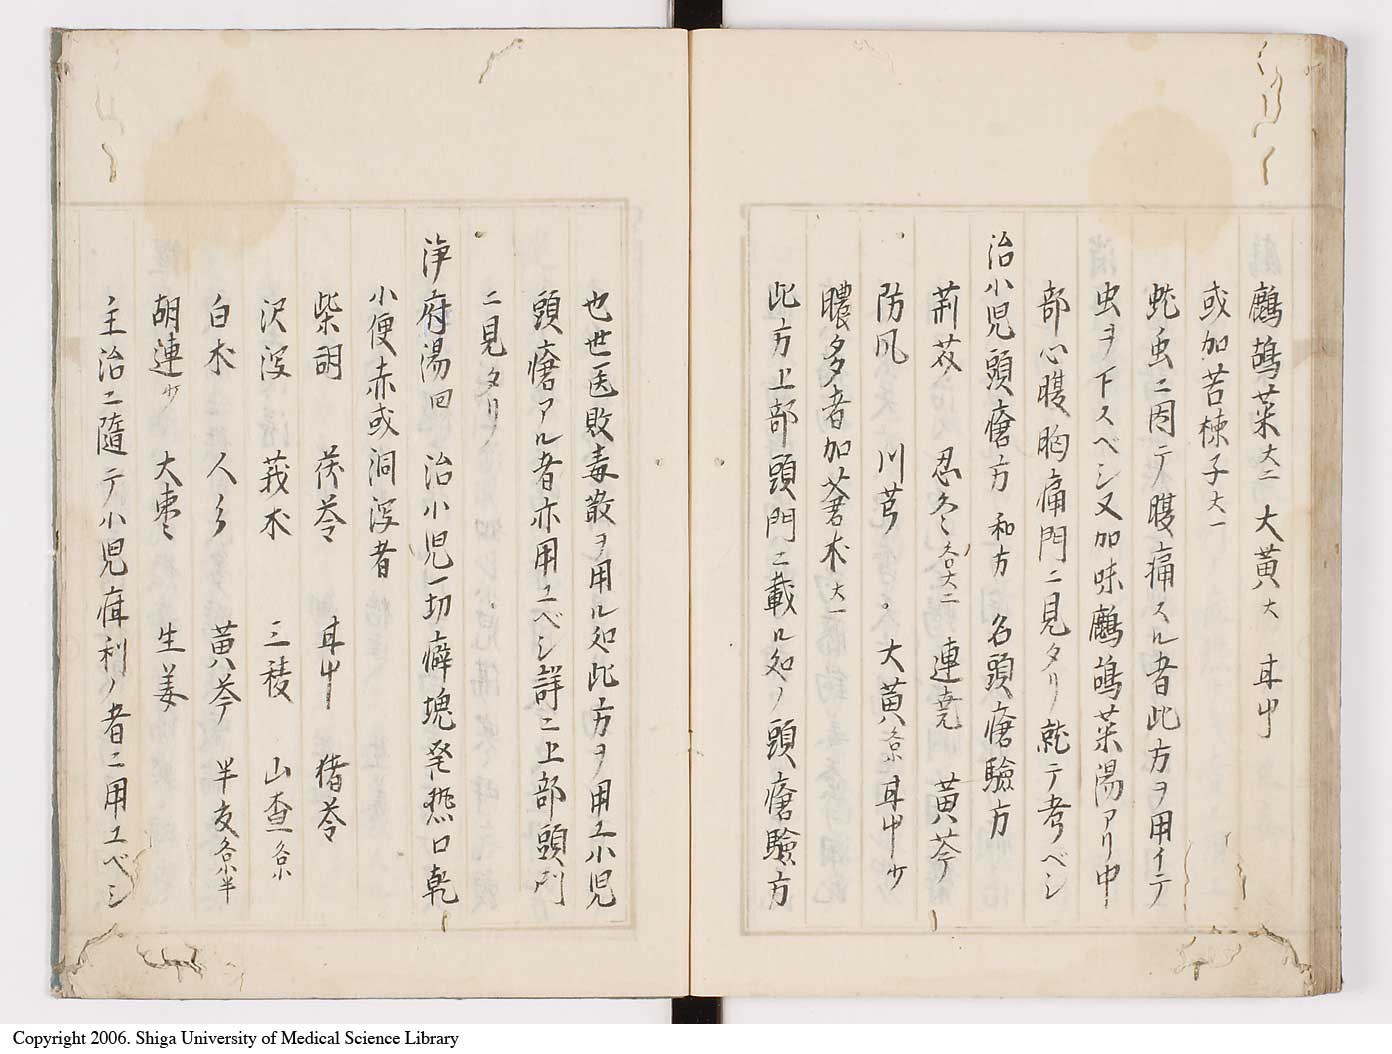 鷓鴣菜大二 大黄大 甘中
或加苦楝子大一
蛇虫ニ因テ腹痛スル者此方ヲ用イテ
虫ヲ下スベシ又加味鷓鴣菜湯アリ中
部心腹胸痛門ニ見タリ就テ考ベシ
治小児頭瘡方 和方 名頭瘡驗方
荊芥 忍冬各大二 連堯 黄芩
防风 川芎 大黄各京 甘中少
膿多者加蒼朮大一
此方上部頭門ニ載ル処ノ頭瘡驗方
也世医敗毒散ヲ用ル処此方ヲ用ユ小児
頭瘡アル者亦用ユベシ詳ニ上部頭門
ニ見タリ
浄府湯回 治小児一切癖塊発熱口乾
小便赤或洞瀉者
柴胡 茯苓 甘中 猪苓
沢瀉 莪朮 三稜 山査各京
白朮 人参 黄芩 半夏各京半
胡連少 大棗 生姜
主治ニ隨テ小児疳利ノ者ニ用ユベシ
Copyright 2006. Shiga University of Medical Science Library